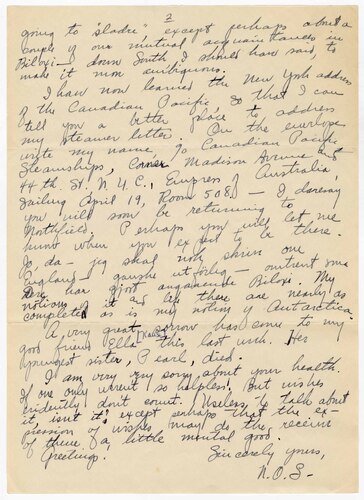 2
going to "sladre", except perhaps about a
couple of our mutual acquaintances in
Biloxi - down South I should have said, to
make it more ambiguous.
I have now learned the New York address
of the Canadian Pacific, so that I can
tell you a better place to address
my steamer letter. On the envelope
write my name, % Canadian Pacific
Steamships, Corner Madison Avenue and
44th St., N.Y.C., Empress of Australia,
Sailing April 19, Room 508. - I daresay
you will soon be returning to
Northfield. Perhaps you will let me
hunt when you expect to be there.
Ja, da - jeg skal nok skrive om
England - ganske utførlig - omtrent som
Dere har gjort angaaende Biloxi. My
notions of it and life there are nearly as
complete as is my notion of Antarctica.
A very great sorrow has come to my
good friend Ella this last week. Her
youngest sister, Pearl, died.
I am very very sorry about your health.
If one only weren't so helpless. But wishes
evidently don't count. Useless to talk about
it, isn't it? except perhaps that the ex-
pression of wishes may do the receiver
of them a little mental good.
Greetings!
Sincerely yours,
N.O.S.